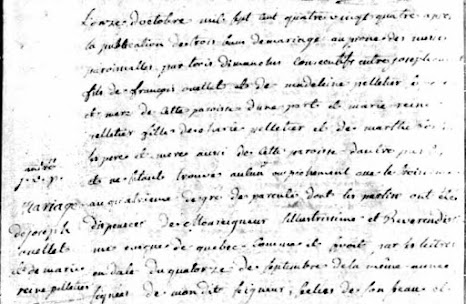 L'onze d'octobre mil sept cent quatre vingt quatre apres
la publication des trois bans de mariage au prone des messes
paroissialles par trois dimanches consecutifs entre joseph
fils de françois ouellet et de madeleine pelletier
et mere de cette paroisse d'une part et marie reine
pelletier fille de charle pelletier et de marthe
les peres et meres aussi de cette paroisse d'autre part
et ne s'etant trouvé aucun empechement que le troisieme
au quatrieme degré de parenté dont les parties ont été
dispensées de Monseigneur Illustrissime et Reverendissi
me eveque de quebec comme il paroit par les lettres
en date du quatorze de septembre de la même année
signées de mondit seigneur, scellées de son sceau et
mariage
de joseph
ouellet
et de marie
reine pelletier